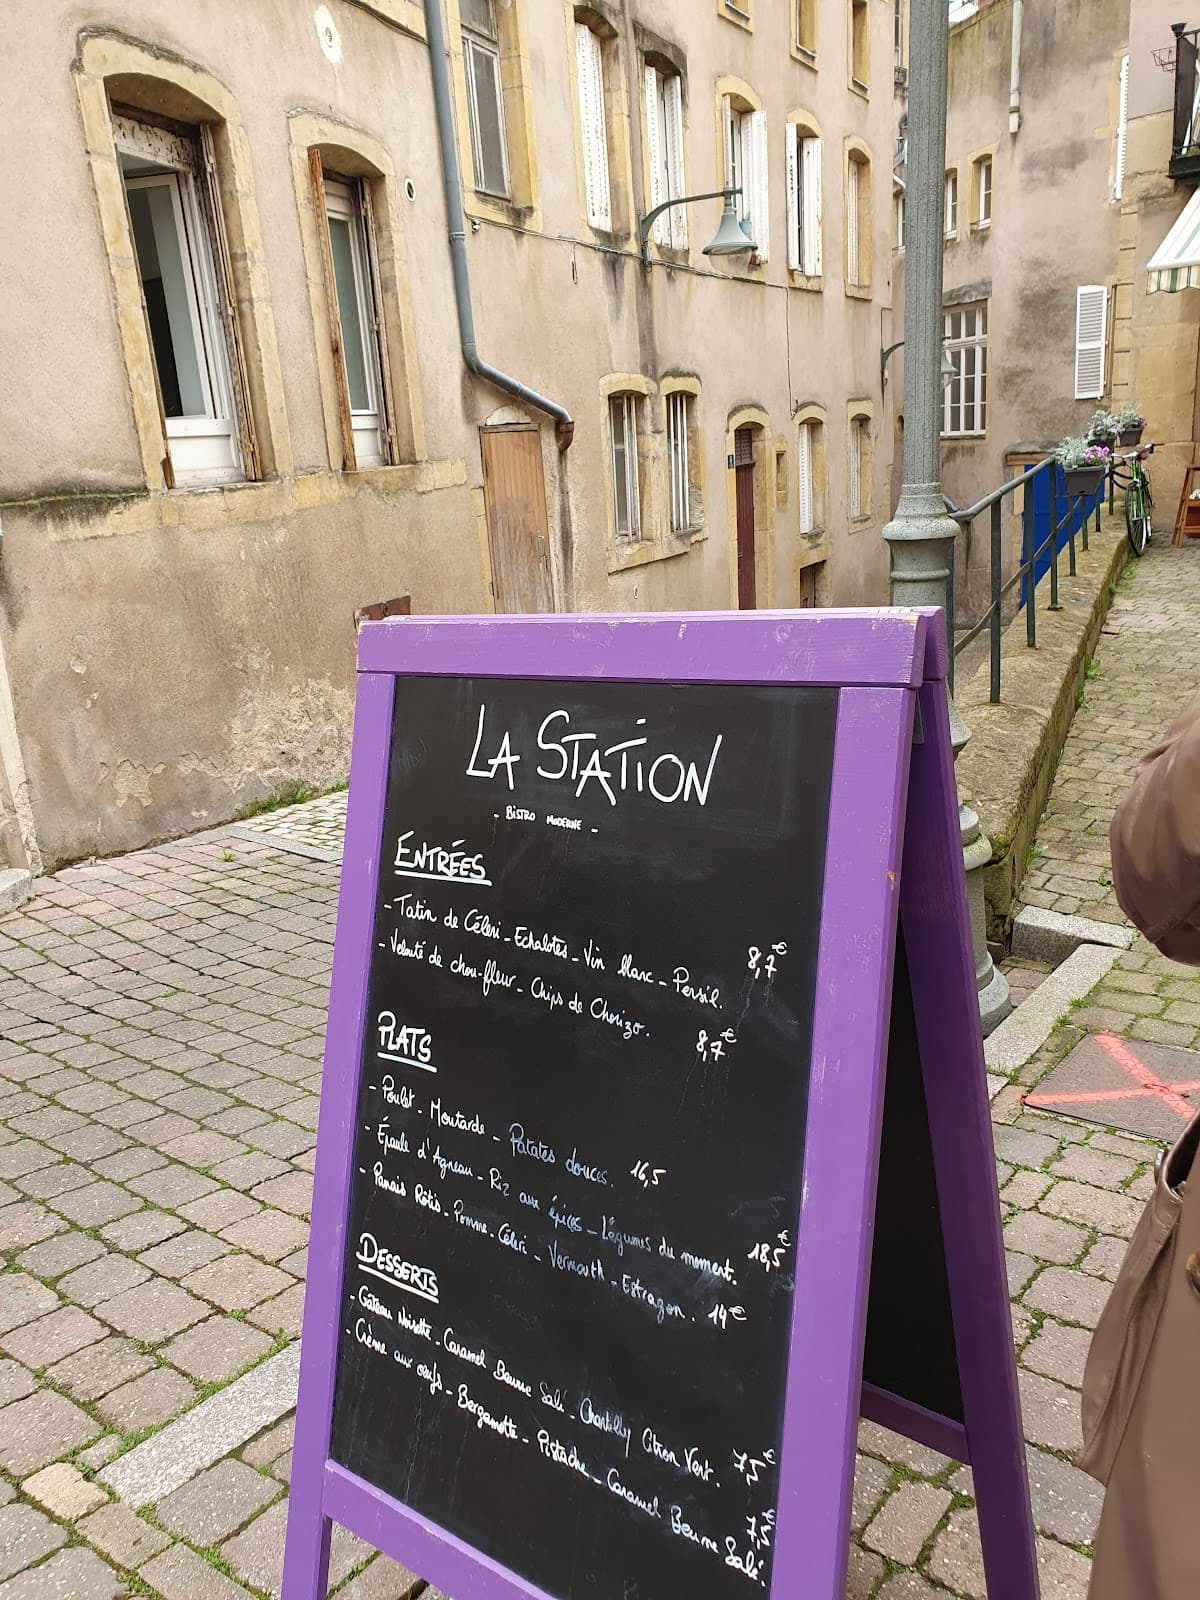 LA STATION
- BISTRO MODERNE -
ENTRÉES
- Tatin de Céleri - Echalotes - Vin blanc - Persil. 8,7€
- Velouté de chou-fleur - Chips de Chorizo. 8,7€
PLATS
- Poulet - Moutarde - Patates douces. 16,5
- Épaule d'Agneau - Riz aux épices - Légumes du moment. 18,5€
- Panais Rôtis - Pomme - Céleri - Vermouth - Estragon. 14€
DESSERTS
- Gâteau Noisette - Caramel Beurre Salé - Chantilly Citron Vert. 7,5€
- Crème aux oeufs - Bergamotte - Pistache - Caramel Beurre Salé. 7,5€